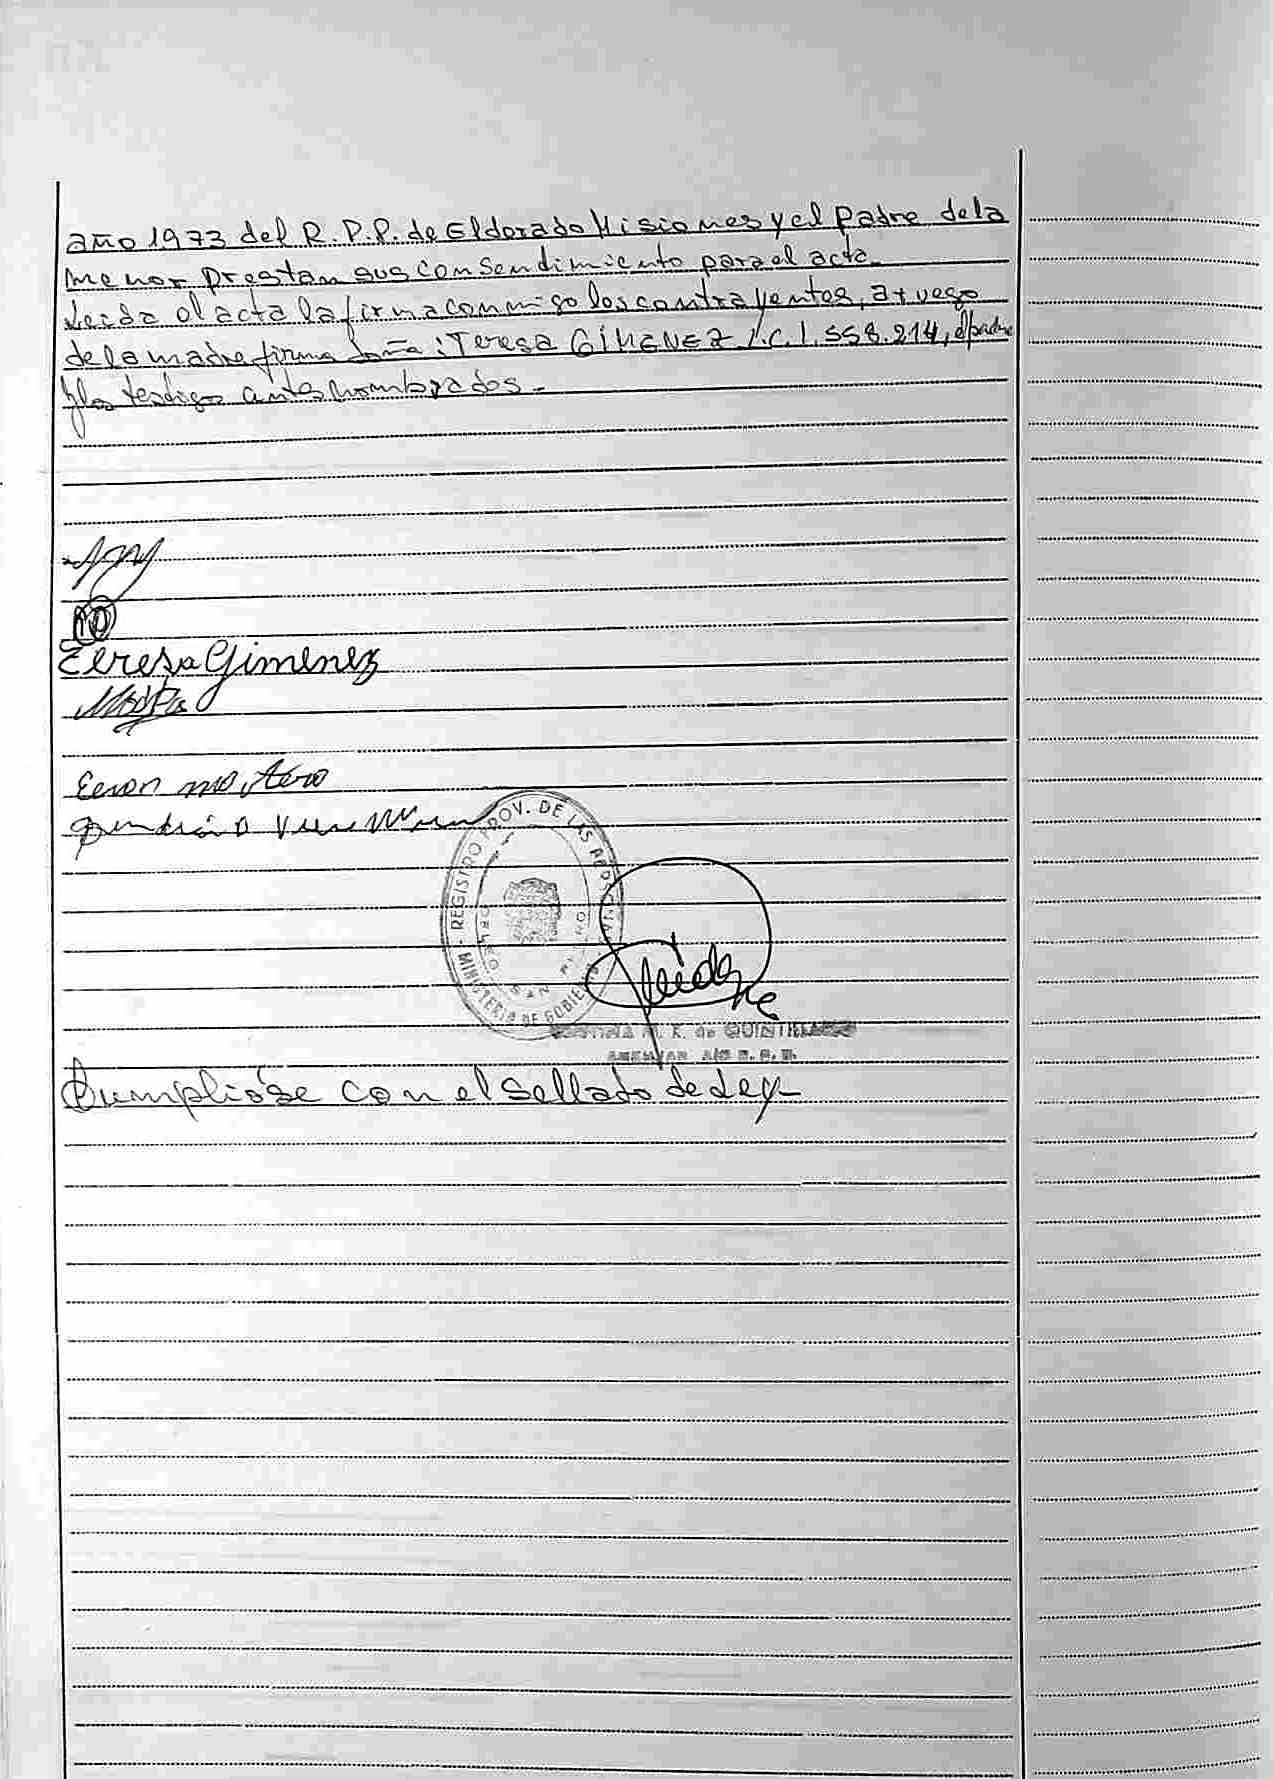 año 1973 del R.P.P. de Eldorado Misiones y el padre de la
menor prestan sus consendimiento para el acta.
Leida el acta la firma conmigo los contrayentes, a ruego
de la madre firma doña: Teresa GIMENEZ L.C. 1.558.214, el padre
y los testigos antes nombrados.-
Teresa Gimenez
REGISTRO PROV. DE LAS PERSONAS
MINISTERIO DE GOBIERNO
M. K. de QUINTILLANO
Cumpliose con el sellado de Ley-